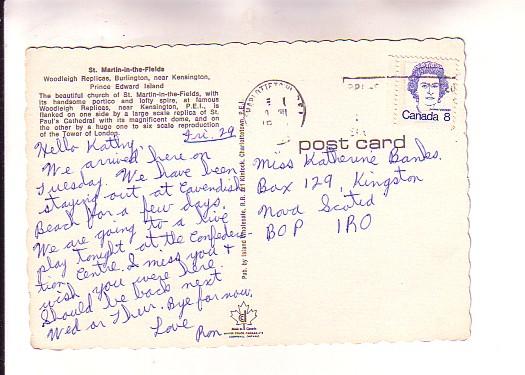 St. Martin-in-the-Fields
Woodleigh Replicas, Burlington, near Kensington,
Prince Edward Island
The beautiful church of St. Martin-in-the-Fields, with
its handsome portico and lofty spire, at famous
Woodleigh Replicas, near Kensington, P.E.I., is
flanked on one side by a large scale replica of St.
Paul's Cathedral with its magnificent dome, and on
the other by a huge one to six scale reproduction
of the Tower of London.
Fri. 29
Hello Kathy,
We arrived here on
Tuesday. We have been
staying out at Cavendish
Beach for a few days.
We are going to a live
play tonight at the Confedera-
tion Centre. I miss you &
wish you were here.
Should be back next
Wed or Thur. Bye for now.
Love Ron
Pub. by Island Wholesale, R.R. #1 Kinlock, Charlottetown, P.E.I.
Canada 8
post card
Miss Katherine Banks.
Box 129, Kingston
Nova Scotia
BOP 1RO